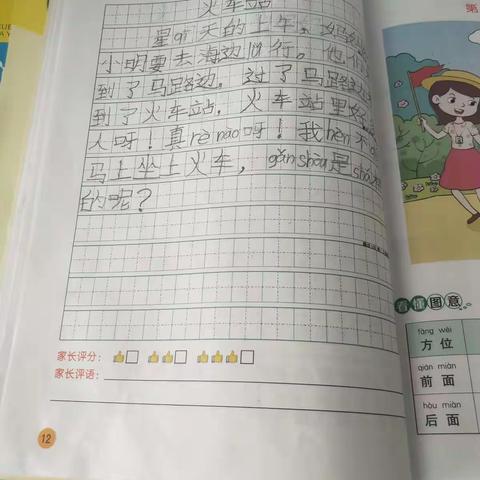 火车站
星qī天的上午,妈
小明要去海边旅行。他们
到了马路边,过了马路
到了火车站,火车站里
人呀!真rè nào呀!我hěn
马上坐上火车,gǎn shòu是
的呢?
家长评分:
家长评语:
12
第
看懂图意
fāng wèi
方位
qián miàn
前面
hòu miàn
后面